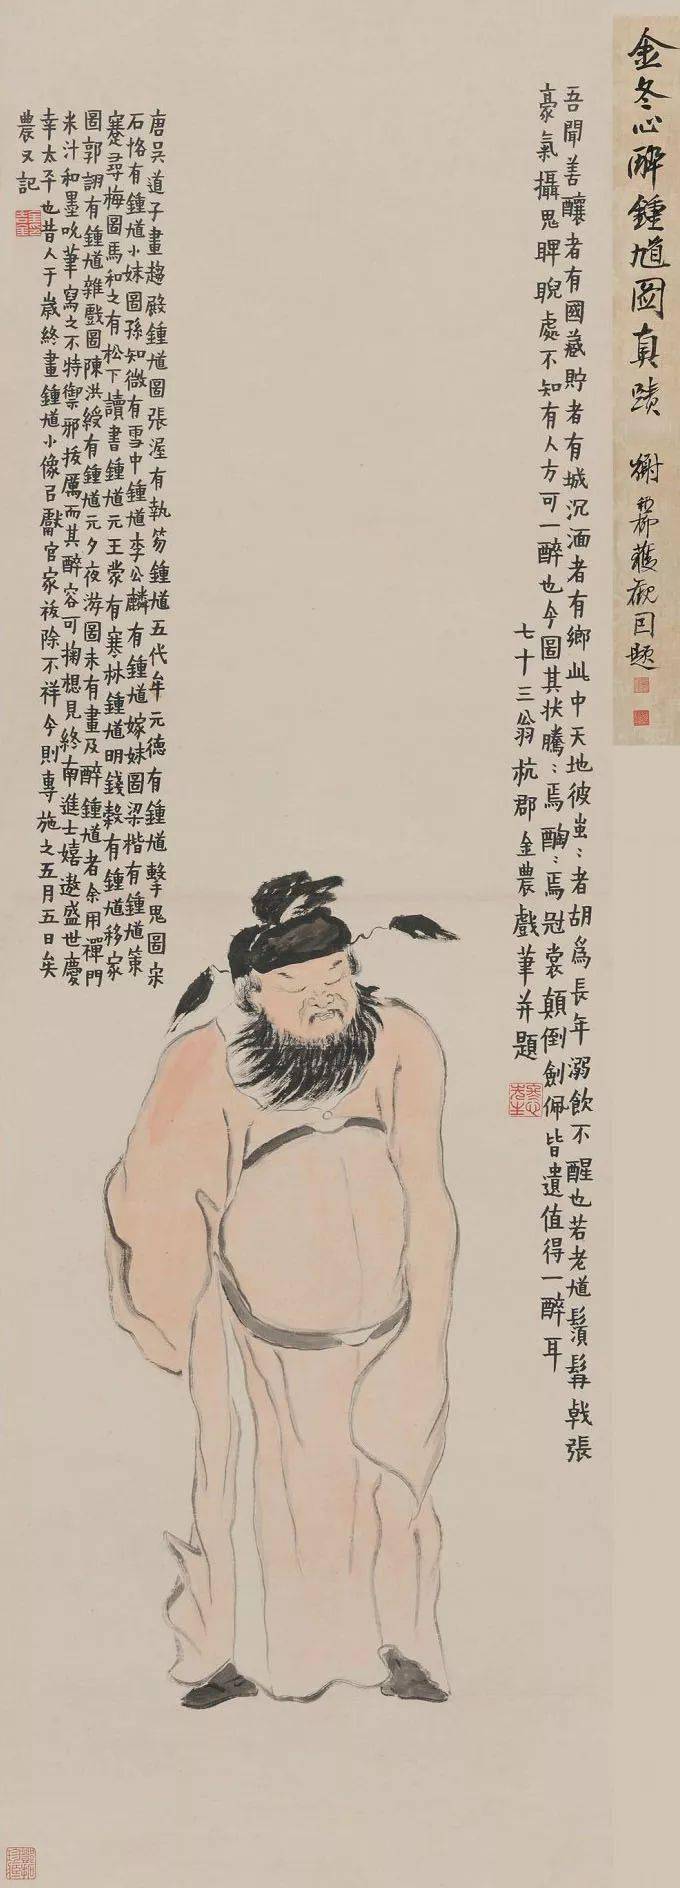 金冬心醉鍾馗圖真蹟
獲觀因題
吾聞善釀者有國藏貯者有城沉湎者有鄉此中天地彼蚩〻者胡為長年溺飲不醒也若老馗鬚髯戟張
豪氣攝鬼睥睨處不知有人方可一醉也今圖其状騰〻焉醄〻焉冠裳顛倒劍佩皆遺值得一醉耳
七十三翁杭郡金農戲筆并題
唐吳道子畫趨殿鍾馗圖張渥有執笏鍾馗五代牟元德有鍾馗擊鬼圖宋
石恪有鍾馗小妹圖孫知微有雪中鍾馗李公麟有鍾馗嫁妹圖梁楷有鍾馗策
蹇尋梅圖馬和之有松下讀書鍾馗元王蒙有寒林鍾馗明錢穀有鍾馗移家
圖郭詡有鍾馗雜戲圖陳洪綬有鍾馗元夕夜游圖未有畫及醉鍾馗者余用禪門
米汁和墨吮筆寫之不特禦邪拔厲而其醉容可掬想見終南進士嬉遨盛世慶
幸太平也昔人于歲終畫鍾馗小像㠯獻官家祓除不祥今則專施之五月五日矣
農又記